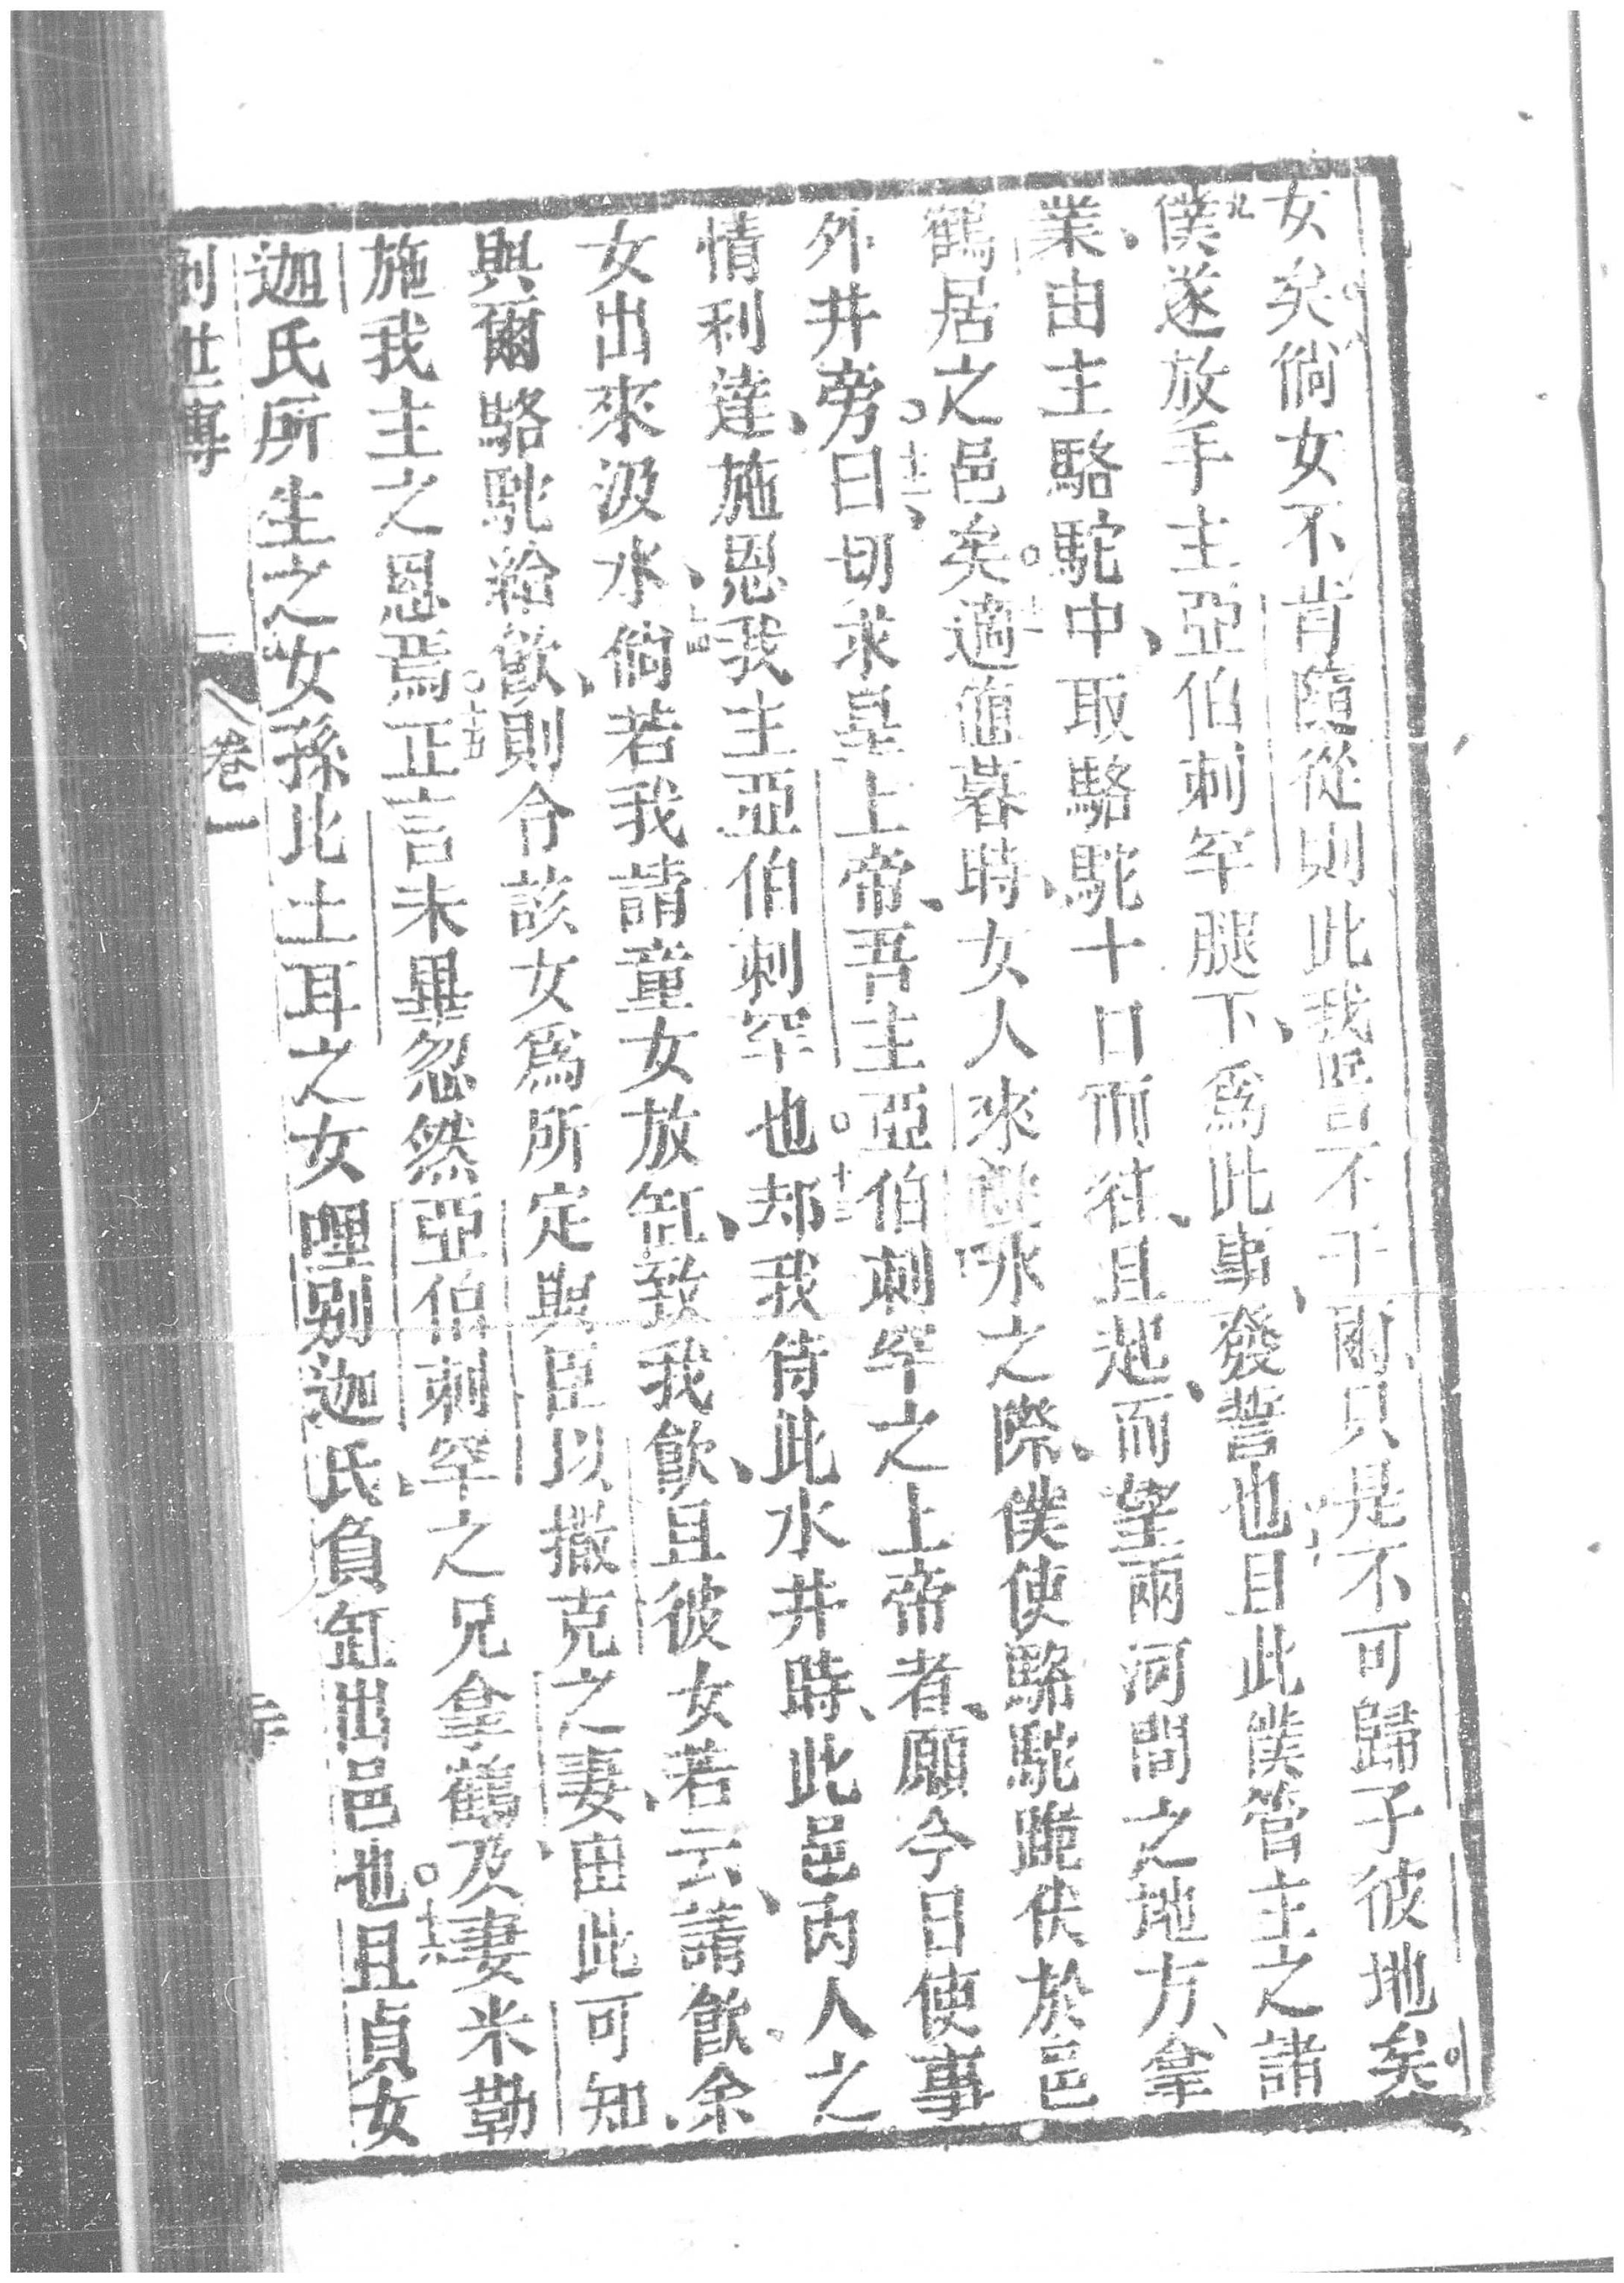 女矣。倘女不肯隨從則此我誓不干爾、只是不可歸子彼地矣。
九僕遂放手主亞伯刺罕腿下、爲此事、發誓也。十且此僕管主之諸
業、由主駱駝中、取駱駝十口而往、且起、而望兩河間之地方、拿
鶴居之邑矣。十一適值暮時、女人來水之際、僕使駱駝跪伏於邑
外井旁。十二、曰切求皇上帝、吾主亞伯刺罕之上帝者、願今日使事
情利達、施恩我主亞伯刺罕也。十三却我侍此水井時、此邑內人之
女出來汲水、十四倘若我請童女放缸、致我飮、且彼女若云、請飮、余
與爾駱駝給飮、則令該女爲所定與臣以撒克之妻、由此可知、
施我主之恩焉。十五正言未畢忽然亞伯刺罕之兄拿鶴、乃妻米勒
迦氏所生之女孫比土耳之女哩別迦氏、負缸出邑也。十六且貞女
創世傳
卷一